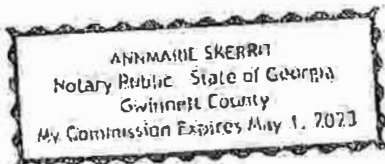 ANNMARIE SKERRIT
Notary Public State of Georgia
Gwinnett County
My Commission Expires May 1, 2023